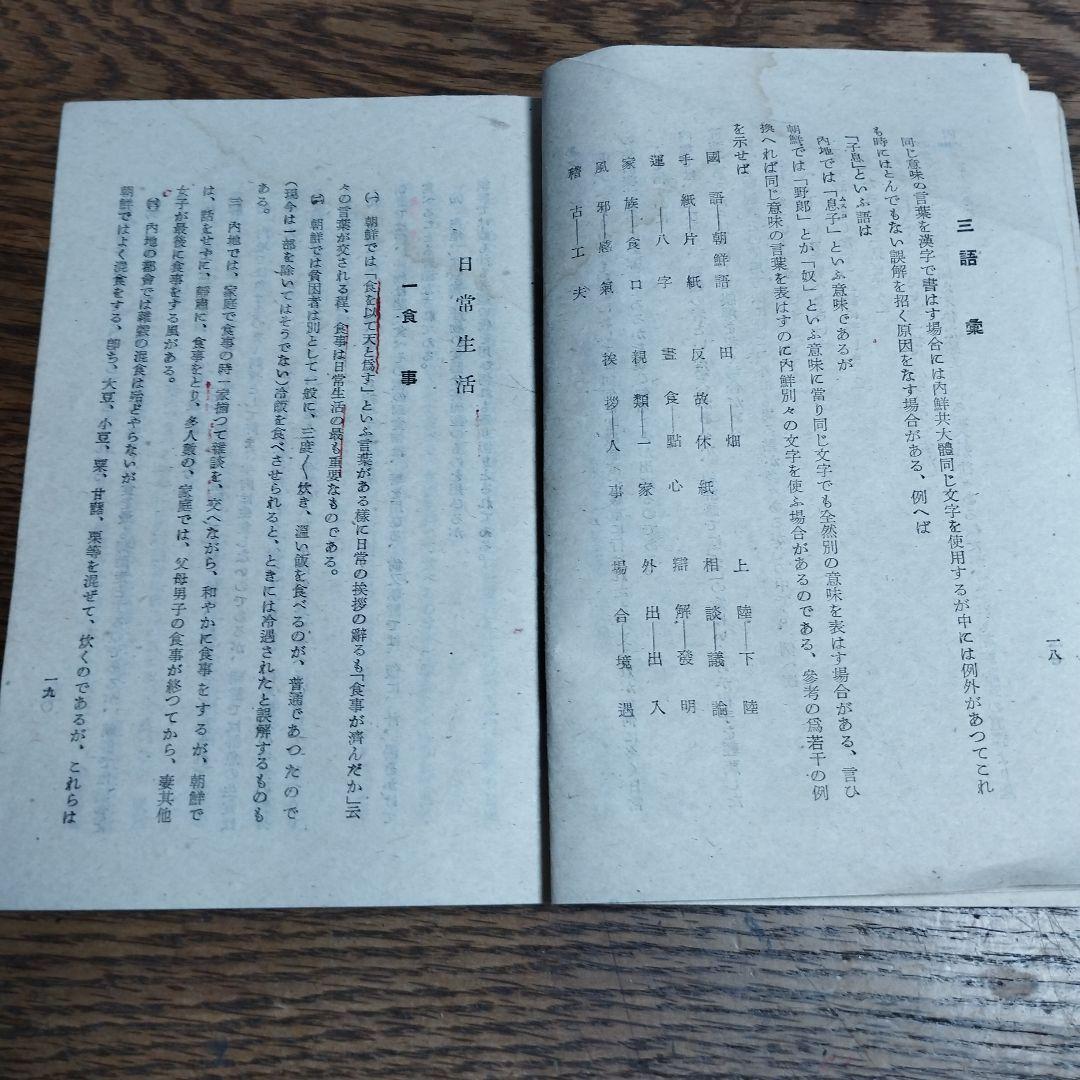 一八
三 語 彙
同じ意味の言葉を漢字で書はす場合には内鮮共大體同じ文字を使用するが中には例外があつてこれ
も時にはとんでもない誤解を招く原因をなす場合がある、例へば
「子息」といふ語は
內地では「息子」といふ意味であるが
朝鮮では「野郎」とか「奴」といふ意味に當り同じ文字でも全然別の意味を表はす場合がある、言ひ
換へれば同じ意味の言葉を表はすのに內鮮別々の文字を使ふ場合があるのである、參考の爲若干の例
を示せば
國語――朝鮮語 田――畑 上陸――下陸
手紙――片紙 反故――休紙 相談――議論
運――八字 晝食――點心 辯解――發明
家族――食口 親類――一家 外出――出入
風邪――感氣 挨拶――人事 場合――境遇
稽古――工夫
日常生活
一 食事
㈠ 朝鮮では「食を以て天と爲す」といふ言葉がある樣に日常の挨拶の辭るも「食事が濟んだか」云
々の言葉が交される程、食事は日常生活の最も重要なものである。
㈡ 朝鮮では貧困者は別として一般に、三度〱炊き、溫い飯を食べるのが、普通であつたので
(現今は一部を除いてはそうでない)冷飯を食べさせられると、ときには冷遇されたと誤解するものも
ある。
㈢ 內地では、家庭で食事の時一家揃つて雜談を、交へながら、和やかに食事をするが、朝鮮で
は、話をせずに、靜肅に、食事をとり、多人數の、家庭では、父母男子の食事が終つてから、妻其他
女子が最後に食事をする風がある。
㈣ 內地の都會では雜穀の混食は殆どやらないが
朝鮮ではよく混食をする、卽ち、大豆、小豆、粟、甘藷、栗等を混ぜて、炊くのであるが、これらは
一九